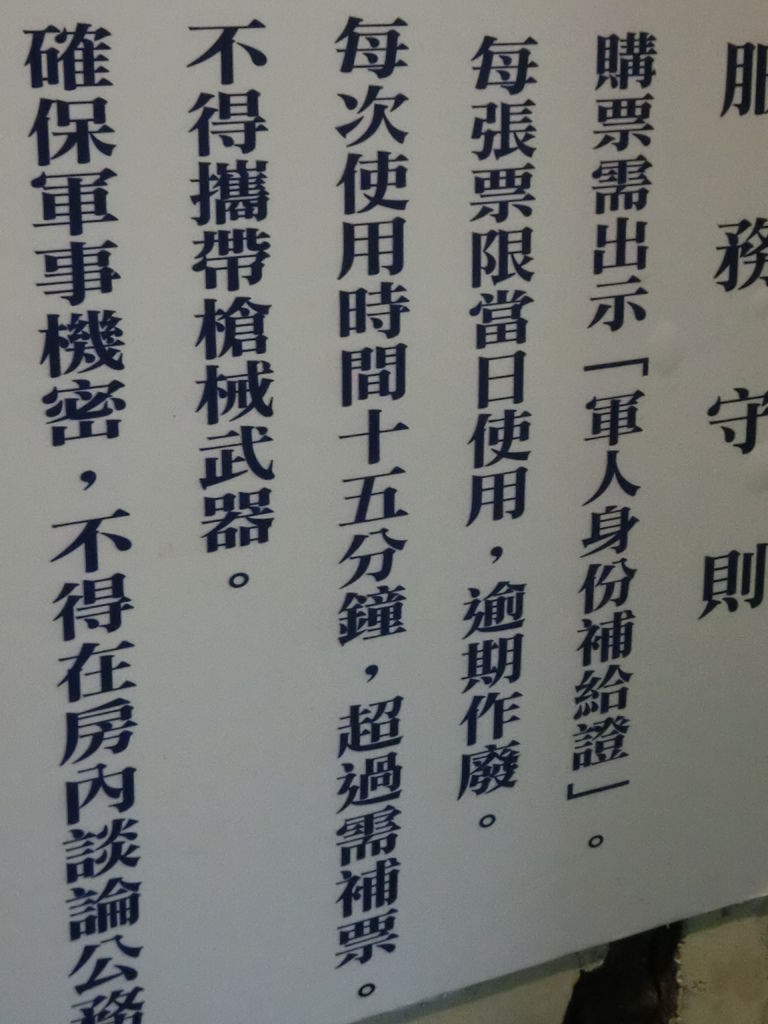 服務守則
購票需出示「軍人身份補給證」。
每張票限當日使用，逾期作廢。
每次使用時間十五分鐘，超過需補票。
不得攜帶槍械武器。
確保軍事機密，不得在房內談論公務